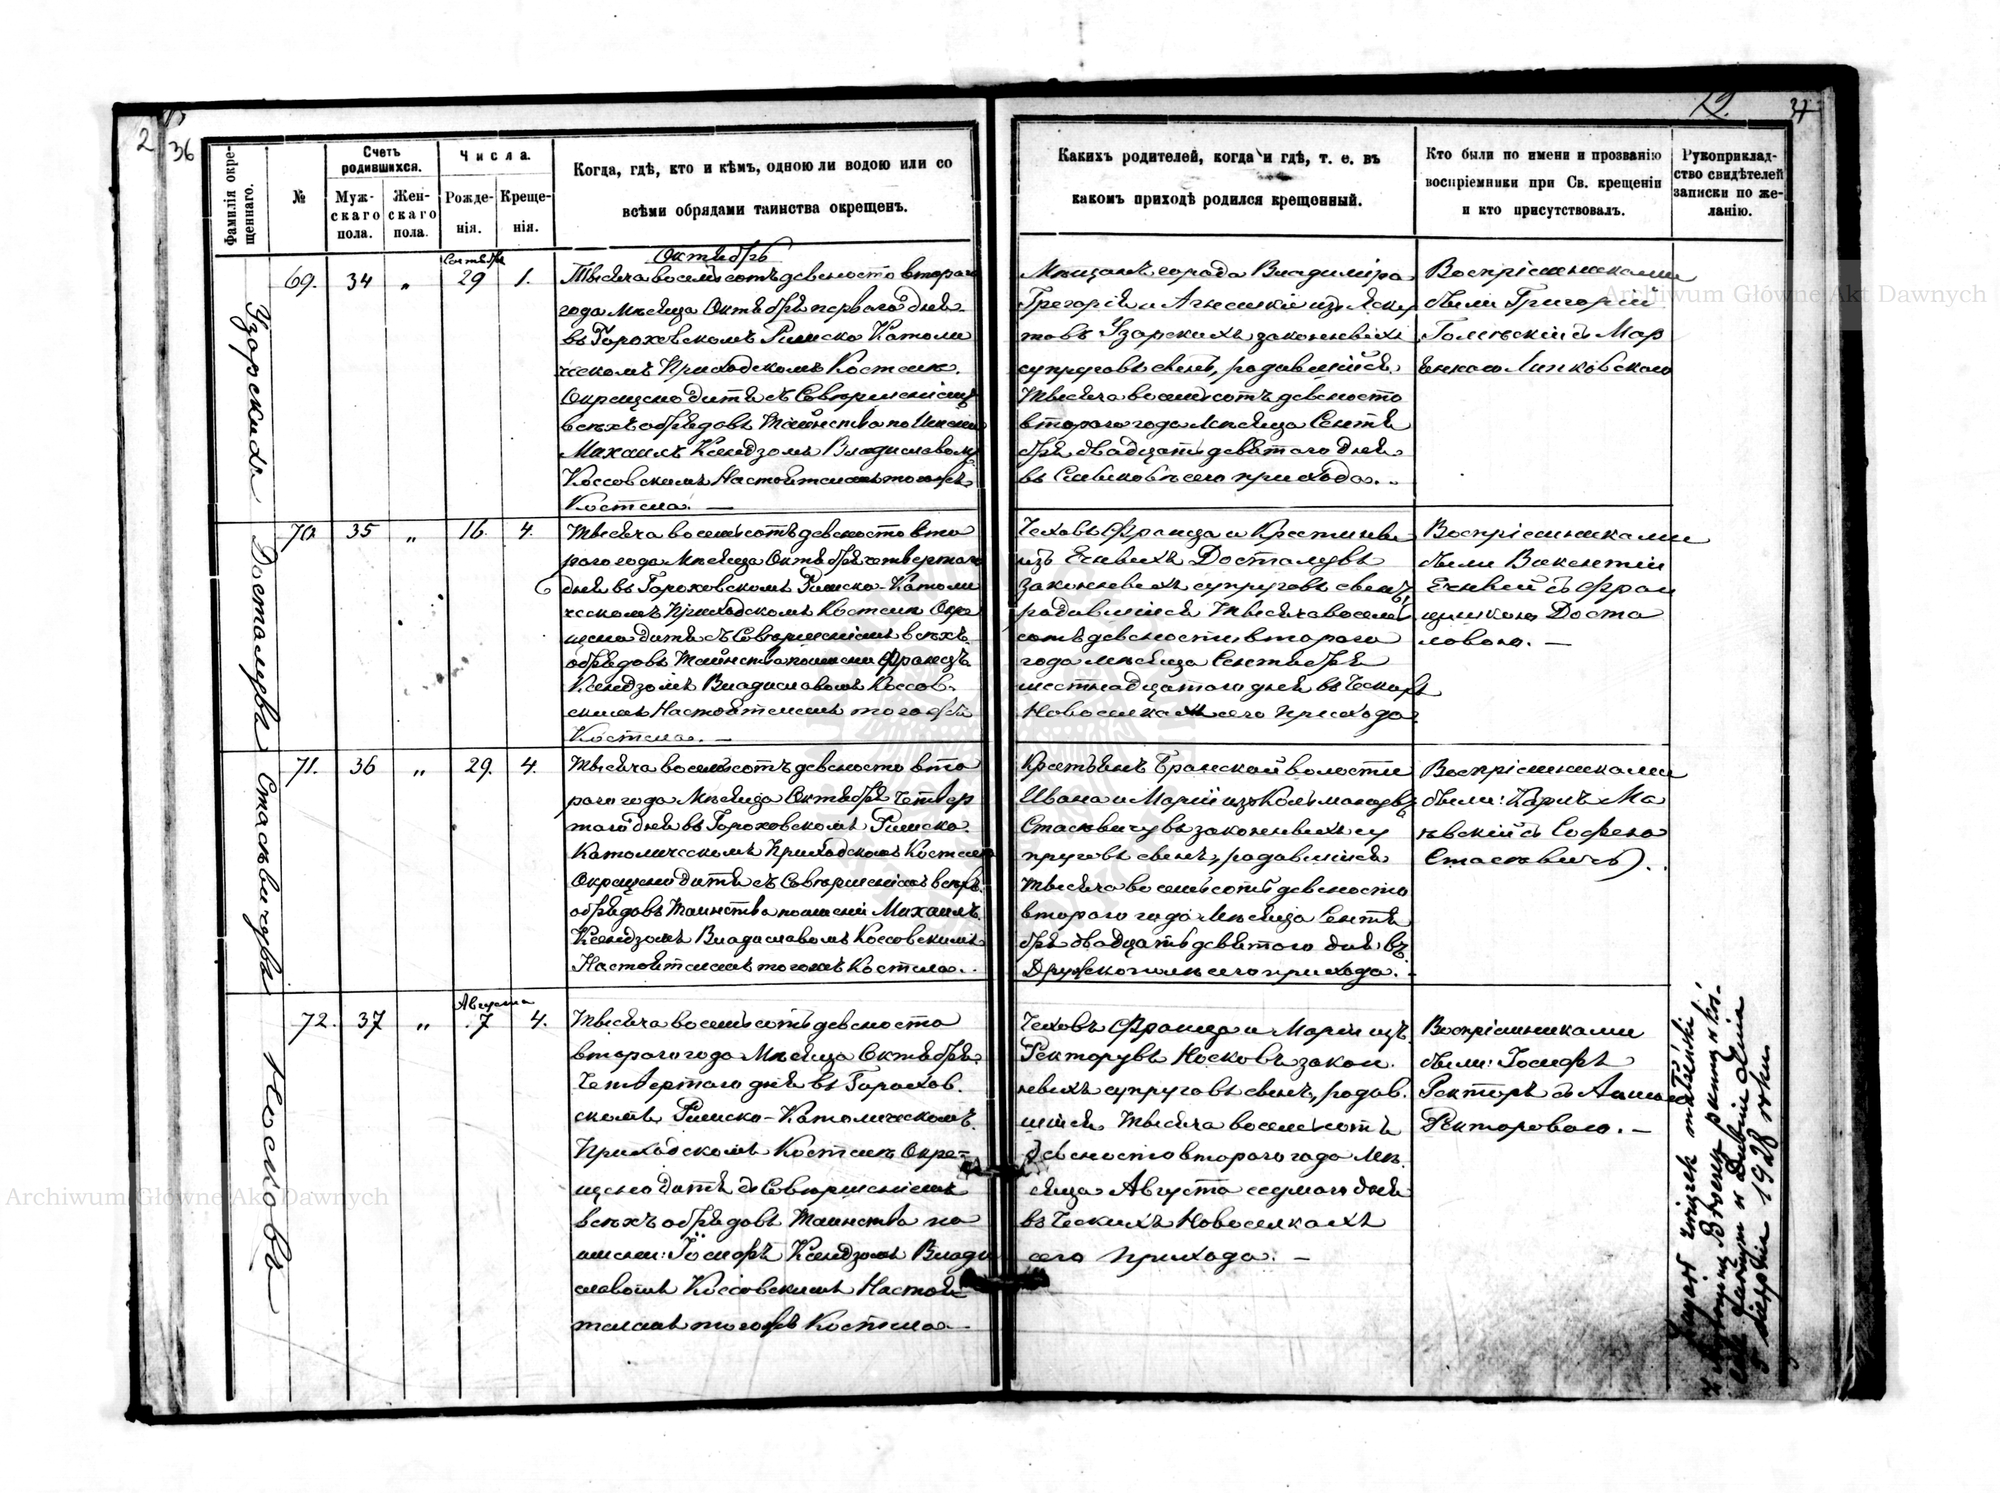 2
36
12.
37
Фамилія окре-
щеннаго.
№
Счетъ
родившихся.
Муж-
скаго
пола.
Жен-
скаго
пола.
Числа.
Рожде-
нія.
Креще-
нія.
Когда, гдѣ, кто и кѣмъ, одною ли водою или со
всѣми обрядами таинства окрещенъ.
Каких родителей, когда и гдѣ, т. е. въ
какомъ приходѣ родился крещенный.
Кто были по имени и прозванію
воспріемники при Св. крещеніи
и кто присутствовалъ.
Рукоприклад-
ство свидѣтелей
записки по же-
ланію.
Узарскихъ
69.
34
„
Сентября
29
1.
Октябрь
Тысяча восемьсотъ девяносто втораго
года Мѣсяца Октября перваго дня
въ Гороховскомъ Римско Католи
ческомъ Приходскомъ Костелѣ
Окрещено дитя съ Совершеніемъ
всѣхъ обрядовъ Таинства по Имени
Михаилъ Ксендзомъ Владиславомъ
Коссовскимъ Настоятелемъ тогожъ
Костела. —
Мѣщанъ города Владиміра
Грегорія и Агнешки изъ
товъ Узарскихъ законныхъ
супруговъ сынъ, родившійся
Тысяча восемьсотъ девяносто
втораго года Мѣсяца Сентя
бря двадцать девятаго дня
въ сего прихода. —
Воспріемниками
были Григорій
съ Мар
Линковскою
Досталувъ
70
35
„
16.
4.
Тысяча восемьсотъ девяносто вто
раго года Мѣсяца Октября четвертаго
дня въ Гороховскомъ Римско-Католи
ческомъ Приходскомъ Костелѣ Окре
щено дитя съ Совершеніемъ всѣхъ
обрядовъ Таинства по имени Францъ
Ксендзомъ Владиславомъ Коссов-
скимъ Настоятелемъ тогожъ
Костела. —
Чеховъ Франца и Крестины
изъ Досталувъ
законныхъ супруговъ сынъ,
родившійся Тысяча восемь
сотъ девяносто втораго
года мѣсяца Сентября
шестнадцатаго дня въ Ческихъ
Новоселкахъ сего прихода
Воспріемниками
были Викентій
съ Фран
цишкою Доста
ловою. —
Стасѣвичувъ
71.
36
„
29.
4.
Тысяча восемьсотъ девяносто вто
раго года Мѣсяца Октября Четвер
таго дня въ Гороховскомъ Римско
Католическомъ Приходскомъ Костелѣ
Окрещено дитя съ Совершеніемъ всѣхъ
обрядовъ Таинства по имени Михаилъ
Ксендзомъ Владиславомъ Коссовскимъ
Настоятелемъ тогожъ Костела.
Крестьянъ Бранской волости
Ивана и Маріи изъ
Стасѣвичувъ законныхъ су
пруговъ сынъ, родившійся
Тысяча восемьсотъ девяносто
втораго года Мѣсяца Сентя
бря двадцать девятаго дня въ
Дружкополѣ сего прихода.
Воспріемниками
были: Карлъ Ма
ѣвскій съ Софіею
Стасѣвичъ.
Носковъ
72.
37
„
Августа
7
4.
Тысяча восемьсотъ девяноста
втораго года Мѣсяца Октября
Четвертаго дня въ Горохов
скомъ Римско-Католическомъ
Приходскомъ Костелѣ Окре-
щено дитя съ Совершеніемъ
всѣхъ обрядовъ Таинства по
имени: Іосифъ Ксендзомъ Влади
славомъ Коссовскимъ Настоя-
телемъ тогожъ Костела
Чеховъ Франца и Маріи изъ
Ректорувъ Носковъ закон
ныхъ супруговъ сынъ, родив
шійся Тысяча восемьсотъ
девяносто втораго года Мѣ
сяца Августа седмаго дня
въ Ческихъ Новоселкахъ
сего прихода. —
Воспріемниками
были: Іосифъ
Ректоръ съ Анною
Ректоровою. —
związek małżeński
w Dubnie dnia
5 sierpnia 1928 roku
Archiwum Główne Akt Dawnych
Archiwum Główne Akt Dawnych